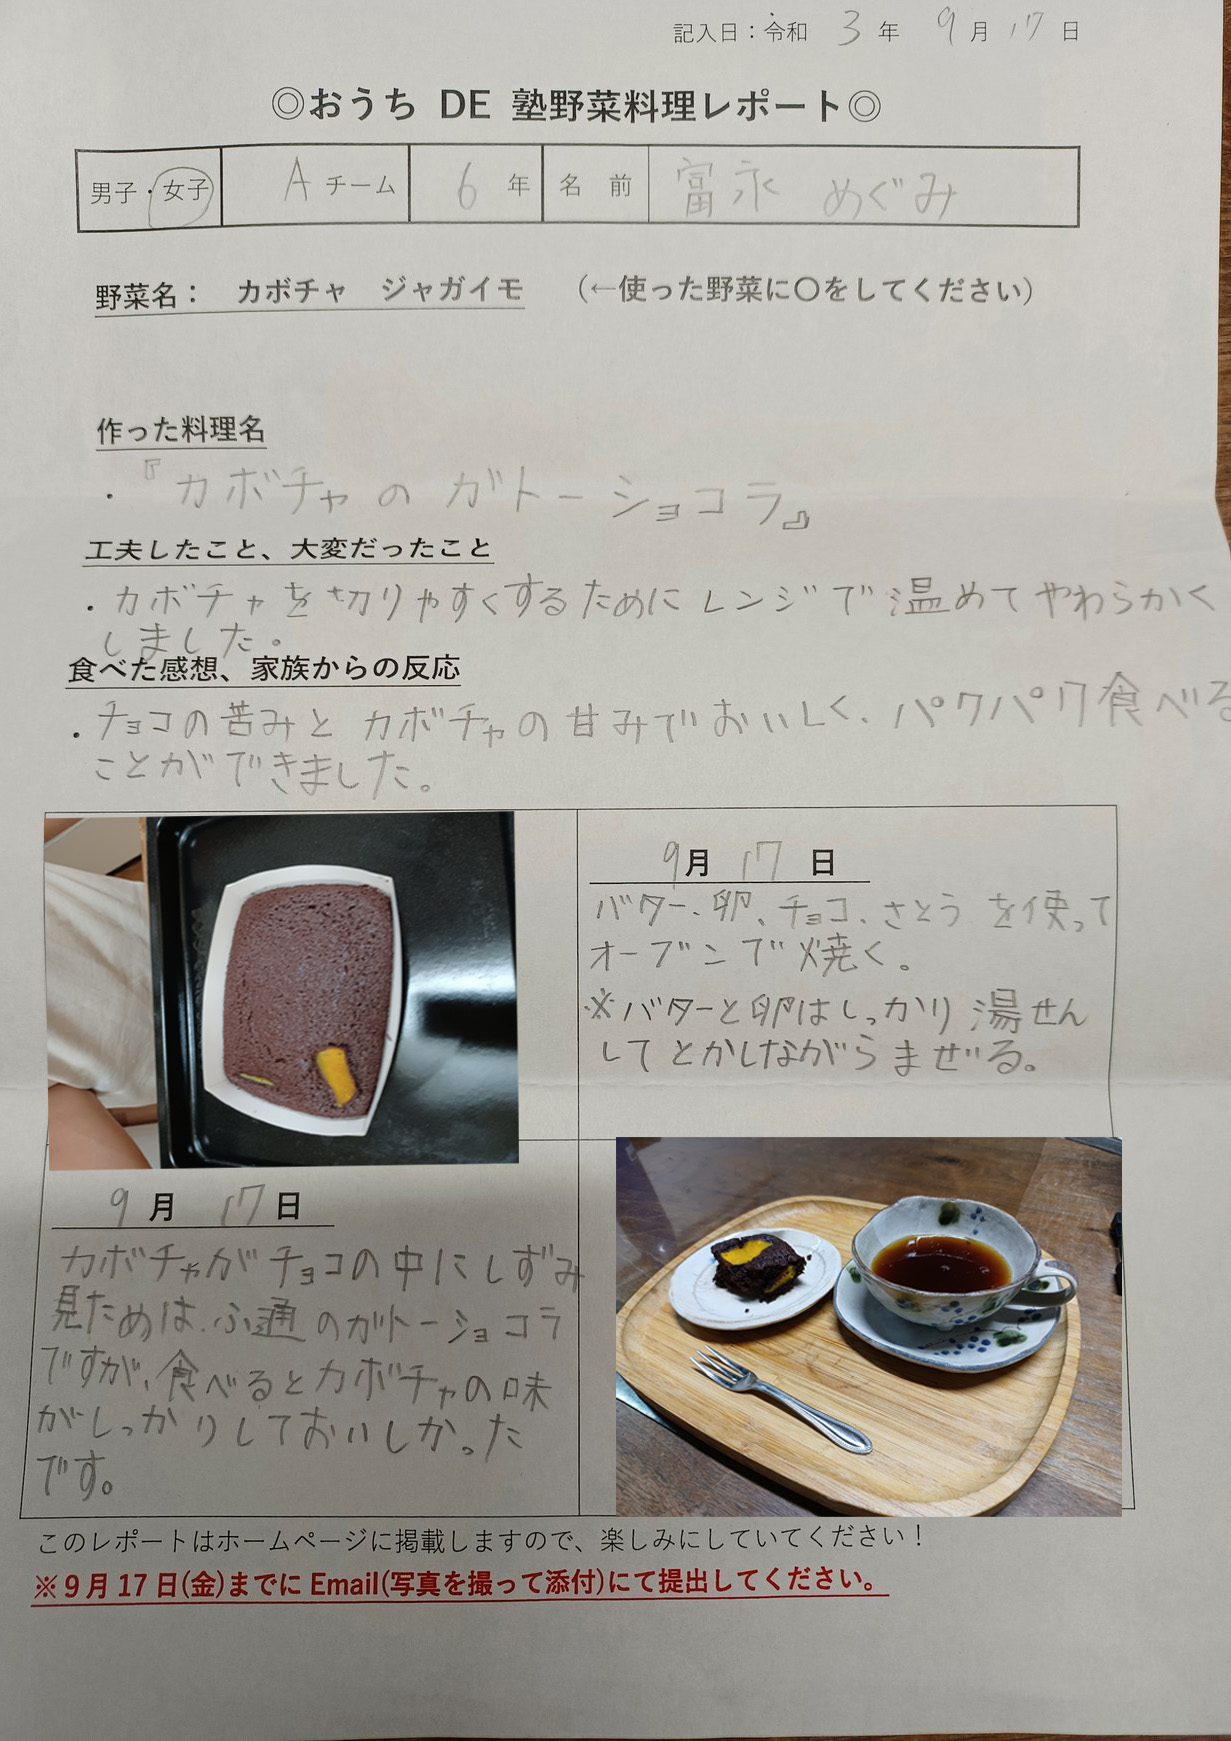 記入日：令和 3 年 9 月 17 日
◎おうち DE 塾野菜料理レポート◎
男子・女子 A チーム 6 年 名 前 富永 めぐみ
野菜名： カボチャ ジャガイモ （←使った野菜に〇をしてください）
作った料理名
・『カボチャのガトーショコラ』
工夫したこと、大変だったこと
・カボチャを切りやすくするためにレンジで温めてやわらかく
しました。
食べた感想、家族からの反応
・チョコの苦みとカボチャの甘みでおいしく、パクパク食べる
ことができました。
9月 17 日
バター、卵、チョコ、さとうを使って
オーブンで焼く。
※バターと卵はしっかり湯せん
してとかしながらまぜる。
9 月 17 日
カボチャがチョコの中にしずみ
見ためは、ふ通のガトーショコラ
ですが、食べるとカボチャの味
がしっかりしておいしかった
です。
このレポートはホームページに掲載しますので、楽しみにしていてください！
※9月17日(金)までにEmail(写真を撮って添付)にて提出してください。